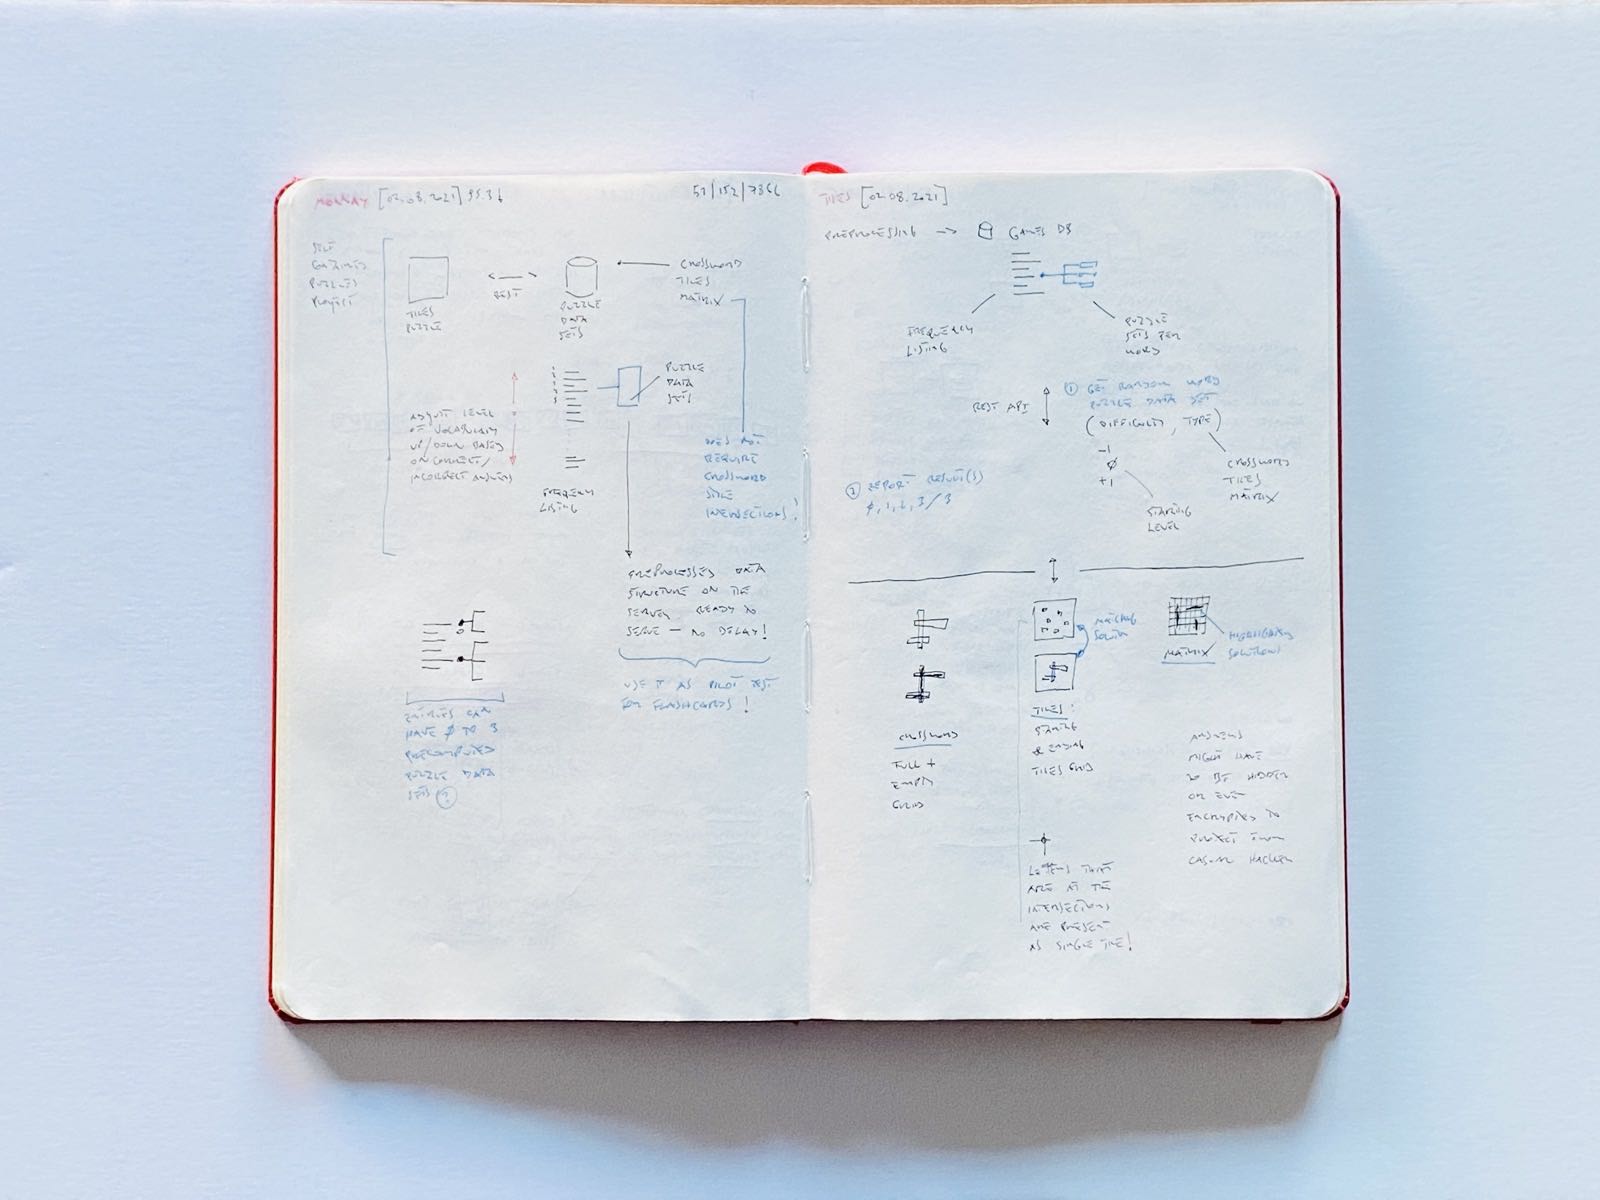 MONDAY [02.08.2021] 95.36
51/152/7866
SELF
CONTAINED
PUZZLES
PROJECT
TILES
PUZZLE
REST
PUZZLE
DATA
SETS
CROSSWORD
TILES
MATRIX
PUZZLE
DATA
SETS
ADJUST LEVEL
OF VOCABULARY
UP/DOWN BASED
ON CORRECT/
INCORRECT ANSWERS
FREQUENCY
LISTING
DOES NOT
REQUIRE
CROSSWORD
STYLE
INTERSECTIONS!
PREPROCESSED DATA
STRUCTURE ON THE
SERVER READY TO
SERVE — NO DELAY!
USE IT AS PILOT TEST
FOR FLASHCARDS!
ENTRIES CAN
HAVE Ø TO 3
PRECOMPUTED
PUZZLE DATA
SETS ?
TILES [02.08.2021]
PREPROCESSING → GAMES DB
FREQUENCY
LISTING
PUZZLE
SETS PER
WORD
REST API
① GET RANDOM WORD
PUZZLE DATA SET
(DIFFICULTY, TYPE)
-1
Ø
+1
STARTING
LEVEL
CROSSWORD
TILES
MATRIX
② REPORT RESULT(S)
Ø, 1, 2, 3 / 3
CROSSWORD
FULL +
EMPTY
GRIDS
MATCHING
TILES:
STARTING
& ENDING
TILES GRID
MATRIX
HIGHLIGHTED
SOLUTIONS
ANSWERS
MIGHT HAVE
TO BE HIDDEN
OR EVEN
ENCRYPTED TO
PROTECT FROM
CASUAL HACKER
LETTERS THAT
ARE AT THE
INTERSECTIONS
ARE PRESENT
AS SINGLE TILE!